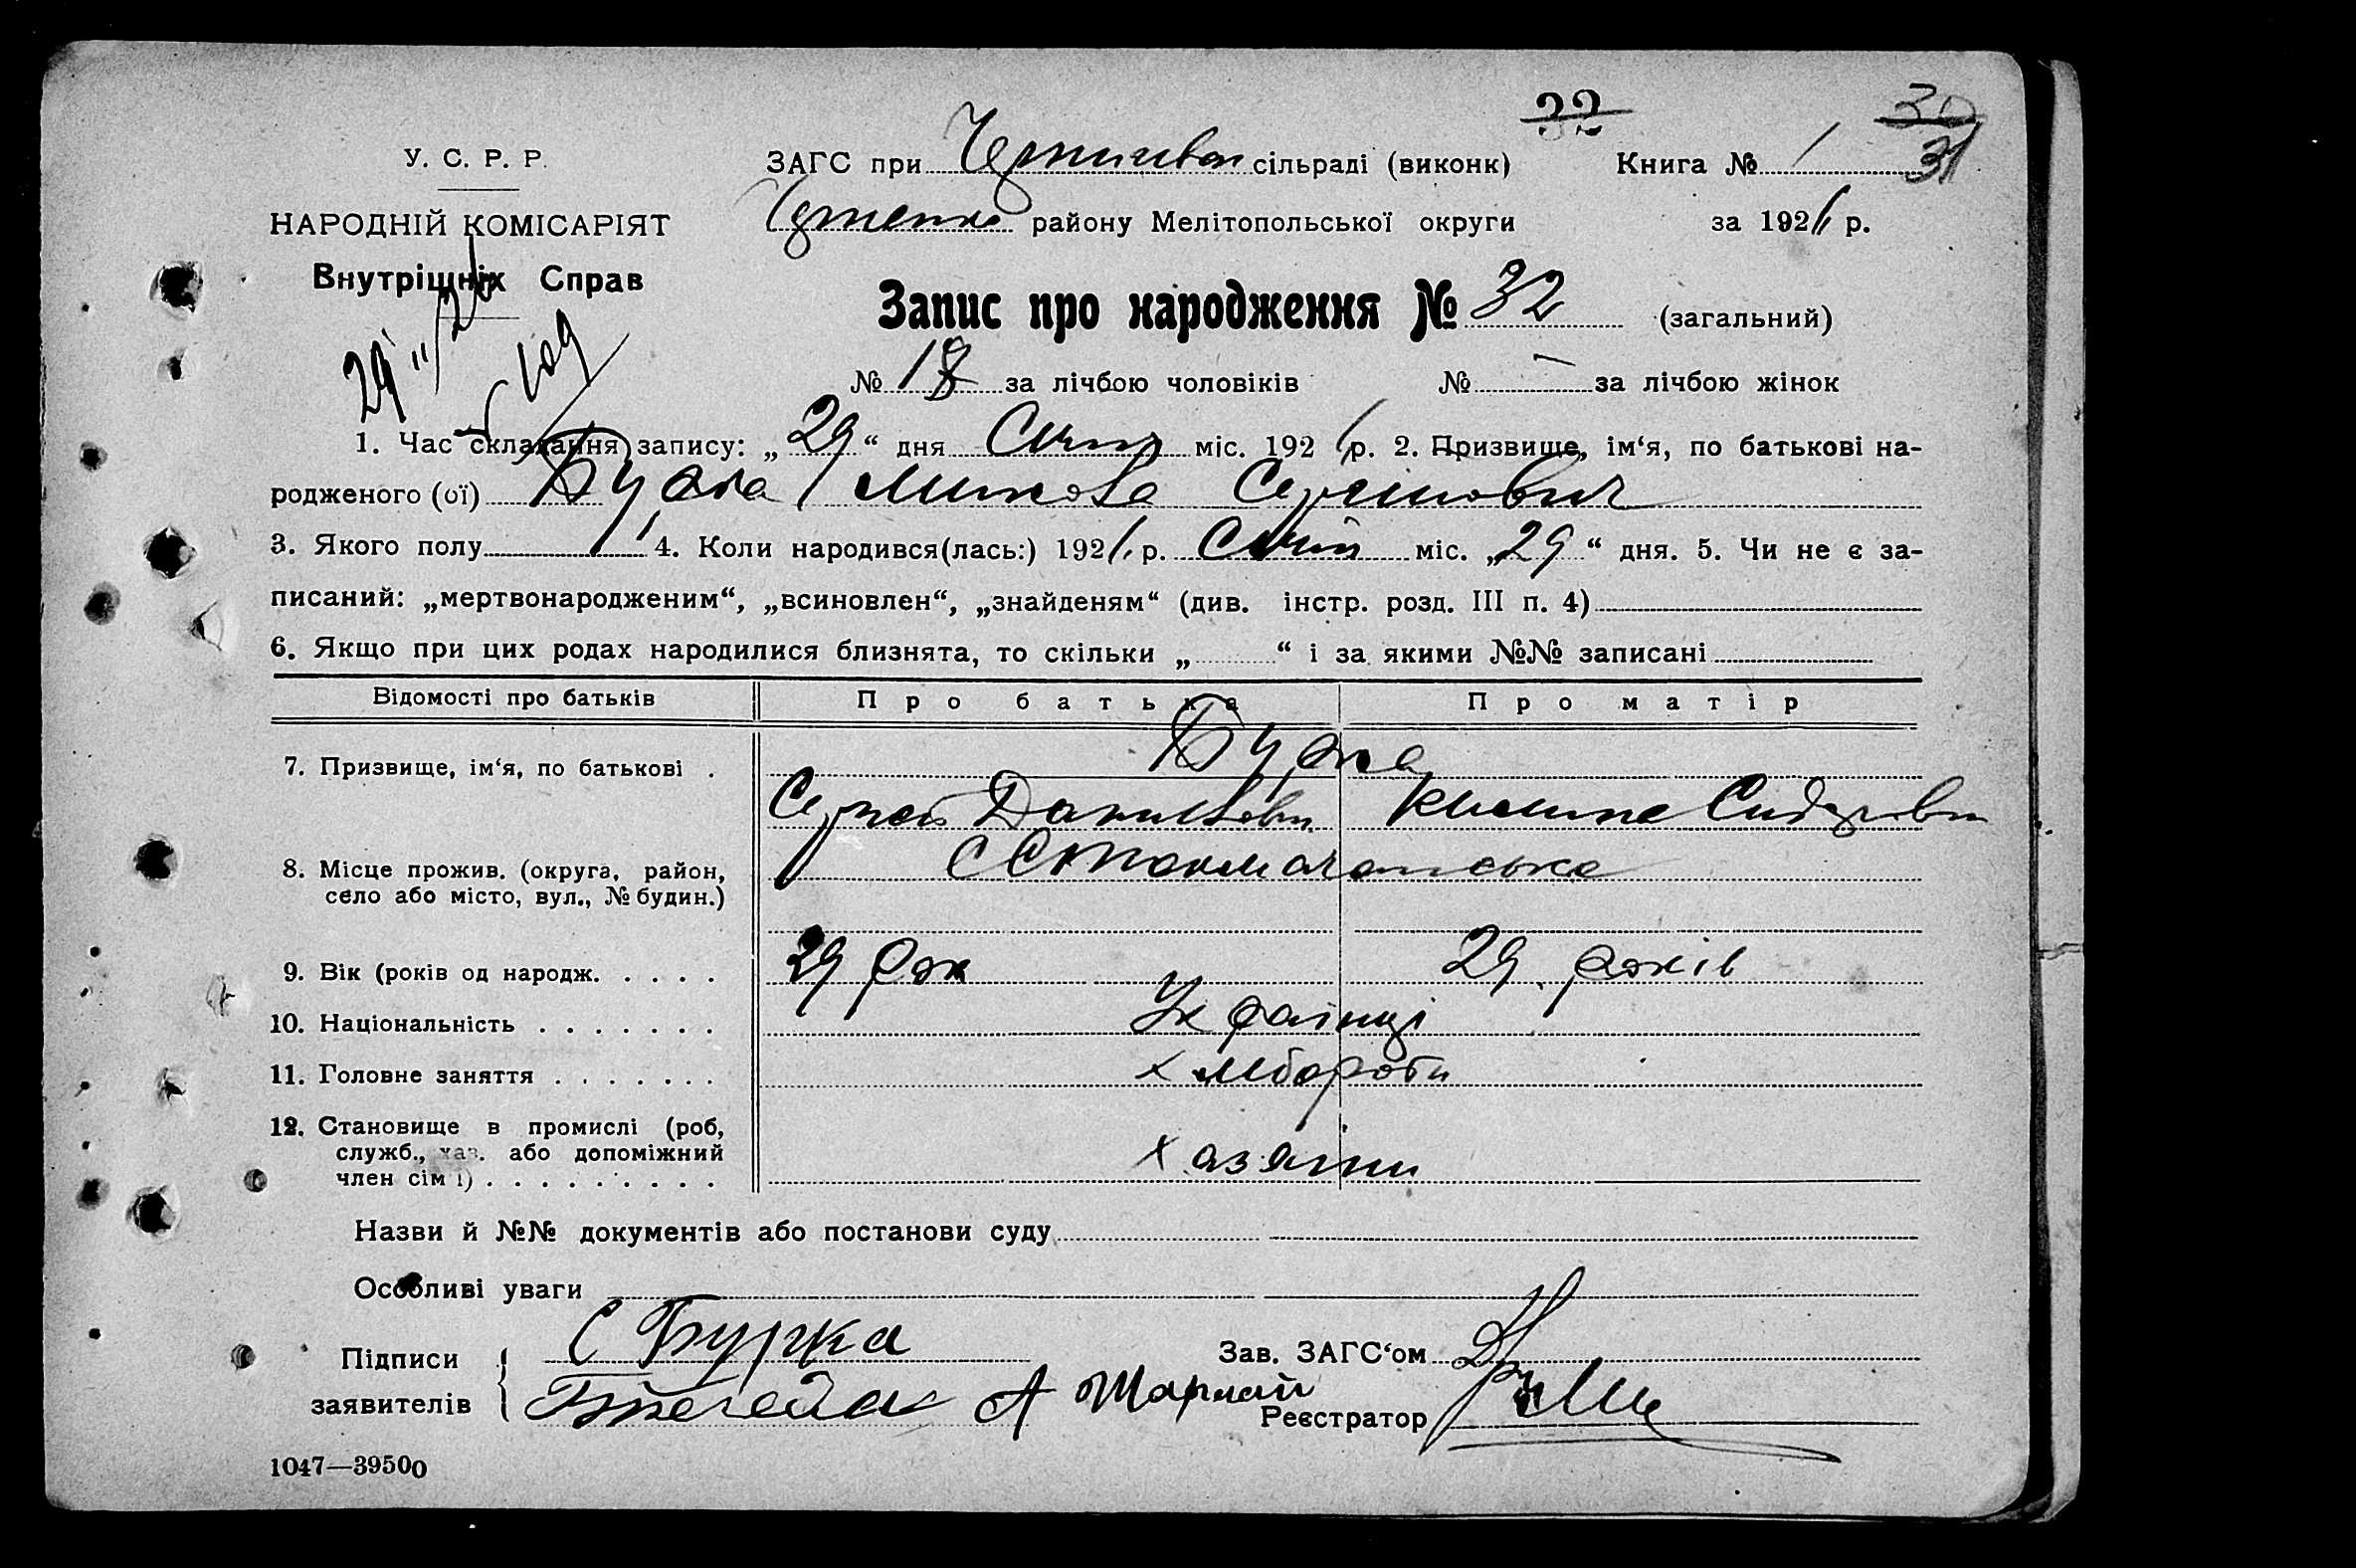 32 30
У. С. Р. Р. ЗАГС при сільраді (виконк) Книга № 1 31
НАРОДНІЙ КОМІСАРІЯТ району Мелітопольської округи за 192 р.
Внутрішніх Справ
Запис про народження № 32 (загальний)
№ 18 за лічбою чоловіків № — за лічбою жінок
1. Час складання запису: „ 29 “ дня Січня міс. 192 р. 2. Призвище, ім‘я, по батькові на-
родженого (ої) Бурка Микола Сергійович
3. Якого полу 4. Коли народився(лась:) 192 р. Січня міс. „ 29 “ дня. 5. Чи не є за-
писаний: „мертвонародженим“, „всиновлен“, „знайденям“ (див. інстр. розд. III п. 4)
6. Якщо при цих родах народилися близнята, то скільки „ “ і за якими №№ записані
Відомості про батьків Про батька Про матір
7. Призвище, ім‘я, по батькові . Бурка
Сергей Данилови Килина Сидоровн
8. Місце прожив. (округа, район,
село або місто, вул., № будин.)
9. Вік (років од народж. . . . . 29 рок 29 років
10. Національність . . . . . . . Українці
11. Головне заняття . . . . . . . хлібороби
12. Становище в промислі (роб,
служб., хаз. або допоміжний
член сім‘ї) . . . . . . . . . хазяїни
Назви й №№ документів або постанови суду
Особливі уваги
Підписи С Бурка Зав. ЗАГС‘ом
заявителів А Шарлай Реєстратор
1047—39500